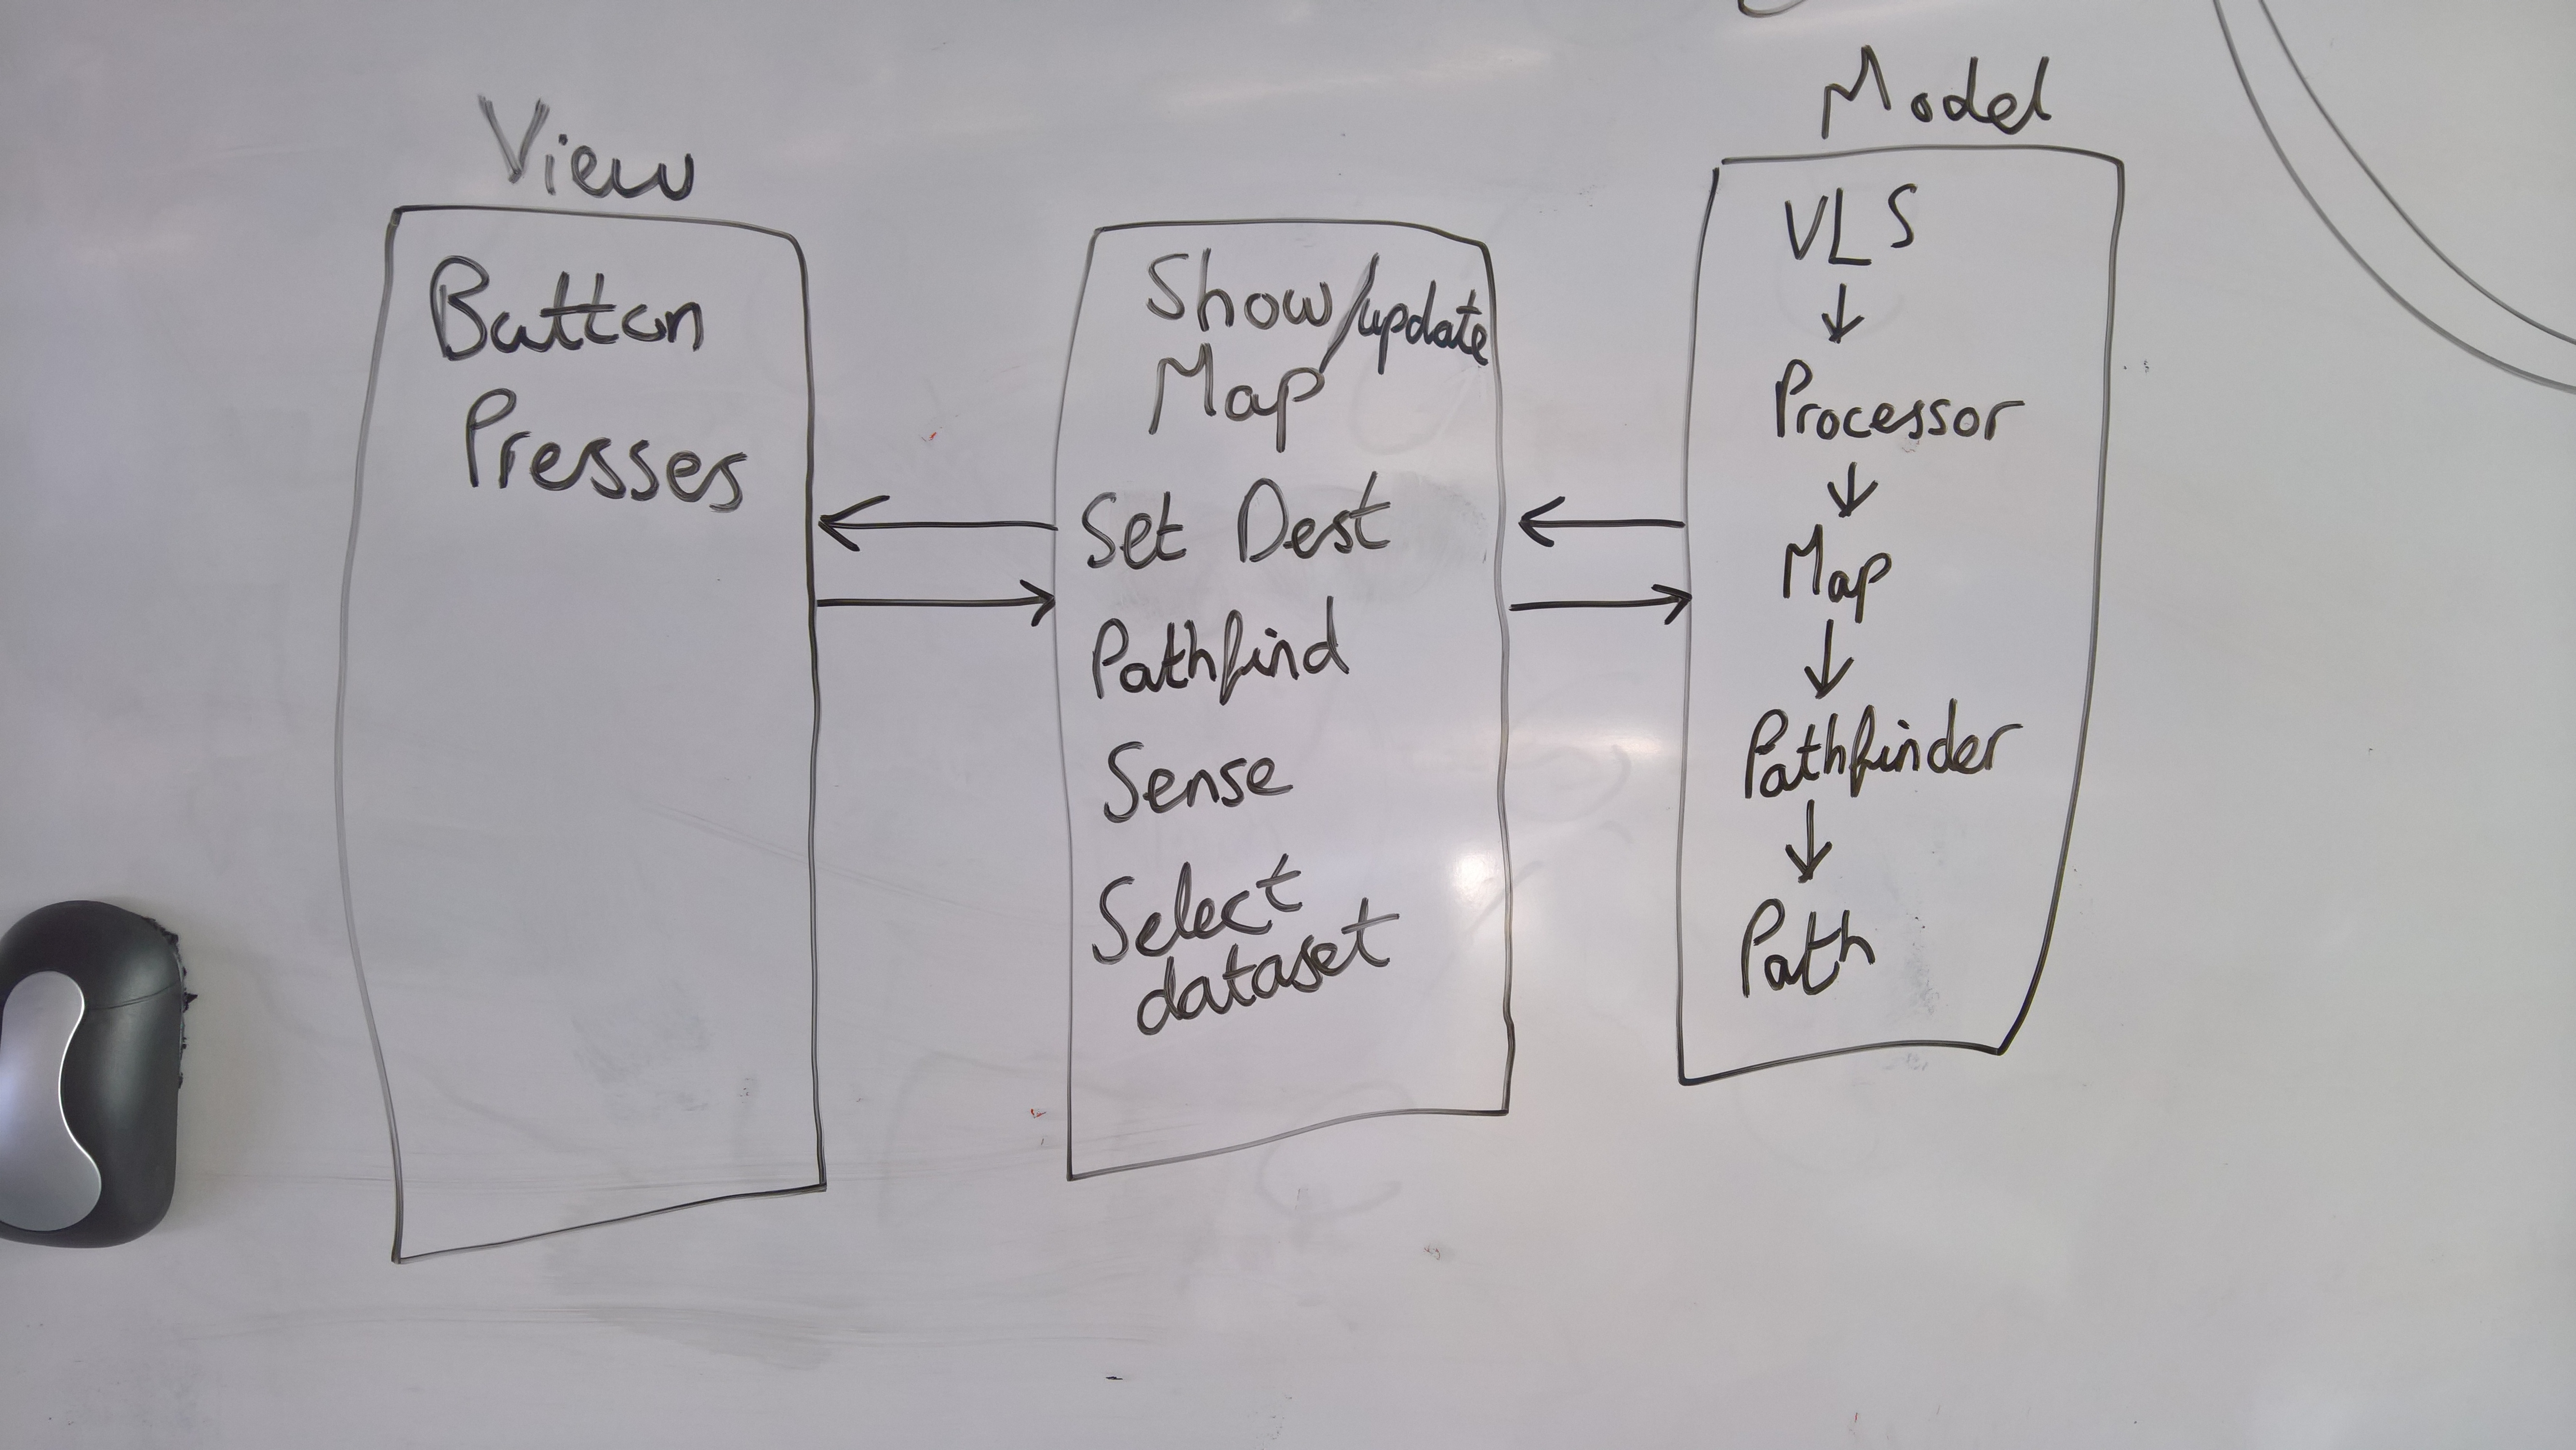 View
Button
Presses
Show/update
Map
Set Dest
Pathfind
Sense
Select
dataset
Model
VLS
Processor
Map
Pathfinder
Path